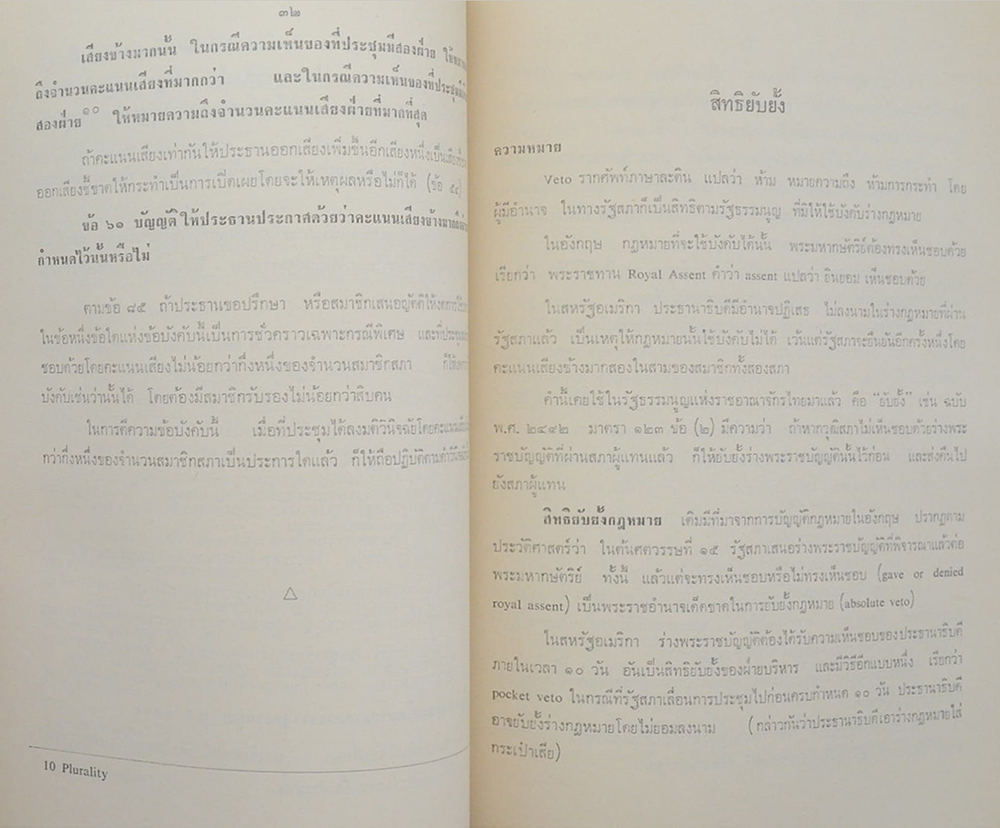 ๓๒
เสียงข้างมากนั้น ในกรณีความเห็นของที่ประชุมมีสองฝ่าย
ถึงจำนวนคะแนนเสียงที่มากกว่า และในกรณีความเห็นของที่ประชุม
สองฝ่าย๑๐ ให้หมายความถึงจำนวนคะแนนเสียงฝ่ายที่มากที่สุด
ถ้าคะแนนเสียงเท่ากันให้ประธานออกเสียงเพิ่มขึ้นอีกเสียงหนึ่งเป็นเสียง
ออกเสียงชี้ขาดให้กระทำเป็นการเปิดเผยโดยจะให้เหตุผลหรือไม่ก็ได้ (ข้อ ๕๔)
ข้อ ๖๑ บัญญัติให้ประธานประกาศด้วยว่าคะแนนเสียงข้างมาก
กำหนดไว้นั้นหรือไม่
ตามข้อ ๘๕ ถ้าประธานขอปรึกษา หรือสมาชิกเสนอญัตติให้
ในข้อหนึ่งข้อใดแห่งข้อบังคับนี้เป็นการชั่วคราวเฉพาะกรณีพิเศษ และที่ประชุม
ชอบด้วยโดยคะแนนเสียงไม่น้อยกว่ากึ่งหนึ่งของจำนวนสมาชิกสภา ก็ให้
บังคับเช่นว่านั้นได้ โดยต้องมีสมาชิกรับรองไม่น้อยกว่าสิบคน
ในการตีความข้อบังคับนี้ เมื่อที่ประชุมได้ลงมติวินิจฉัยโดยคะแนน
กว่ากึ่งหนึ่งของจำนวนสมาชิกสภาเป็นประการใดแล้ว ก็ให้ถือปฏิบัติตาม
10 Plurality
สิทธิยับยั้ง
ความหมาย
Veto รากศัพท์ภาษาละติน แปลว่า ห้าม หมายความถึง ห้ามการกระทำ โดย
ผู้มีอำนาจ ในทางรัฐสภาก็เป็นสิทธิตามรัฐธรรมนูญ ที่มิให้ใช้บังคับร่างกฎหมาย
ในอังกฤษ กฎหมายที่จะใช้บังคับได้นั้น พระมหากษัตริย์ต้องทรงเห็นชอบด้วย
เรียกว่า พระราชทาน Royal Assent คำว่า assent แปลว่า ยินยอม เห็นชอบด้วย
ในสหรัฐอเมริกา ประธานาธิบดีมีอำนาจปฏิเสธ ไม่ลงนามในร่างกฎหมายที่ผ่าน
รัฐสภาแล้ว เป็นเหตุให้กฎหมายนั้นใช้บังคับไม่ได้ เว้นแต่รัฐสภาจะยืนยันอีกครั้งหนึ่งโดย
คะแนนเสียงข้างมากสองในสามของสมาชิกทั้งสองสภา
คำนี้เคยใช้ในรัฐธรรมนูญแห่งราชอาณาจักรไทยมาแล้ว คือ "ยับยั้ง" เช่น ฉบับ
พ.ศ. ๒๔๙๒ มาตรา ๑๒๓ ข้อ (๒) มีความว่า ถ้าหากวุฒิสภาไม่เห็นชอบด้วยร่างพระ
ราชบัญญัติที่ผ่านสภาผู้แทนแล้ว ก็ให้ยับยั้งร่างพระราชบัญญัตินั้นไว้ก่อน และส่งคืนไป
ยังสภาผู้แทน
สิทธิยับยั้งกฎหมาย เดิมมีที่มาจากการบัญญัติกฎหมายในอังกฤษ ปรากฏตาม
ประวัติศาสตร์ว่า ในต้นศตวรรษที่ ๑๕ รัฐสภาเสนอร่างพระราชบัญญัติที่พิจารณาแล้วต่อ
พระมหากษัตริย์ ทั้งนี้ แล้วแต่จะทรงเห็นชอบหรือไม่ทรงเห็นชอบ (gave or denied
royal assent) เป็นพระราชอำนาจเด็ดขาดในการยับยั้งกฎหมาย (absolute veto)
ในสหรัฐอเมริกา ร่างพระราชบัญญัติต้องได้รับความเห็นชอบของประธานาธิบดี
ภายในเวลา ๑๐ วัน อันเป็นสิทธิยับยั้งของฝ่ายบริหาร และมีวิธีอีกแบบหนึ่ง เรียกว่า
pocket veto ในกรณีที่รัฐสภาเลื่อนการประชุมไปก่อนครบกำหนด ๑๐ วัน ประธานาธิบดี
อาจยับยั้งร่างกฎหมายโดยไม่ยอมลงนาม (กล่าวกันว่าประธานาธิบดีเอาร่างกฎหมายใส่
กระเป๋าเสีย)